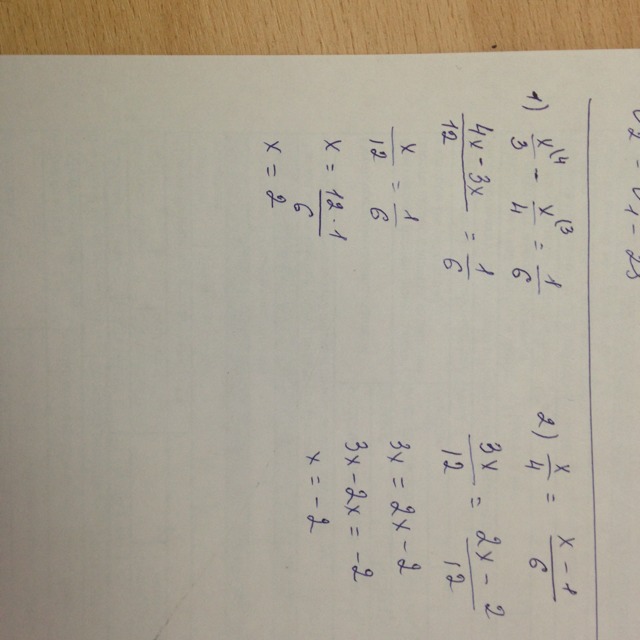 1) x(4/3 - x(3/4 = 1/6
4x - 3x/12 = 1/6
x/12 = 1/6
x = 12·1/6
x = 2
2) x/4 = x - 1/6
3x/12 = 2x - 2/12
3x = 2x - 2
3x - 2x = -2
x = -2